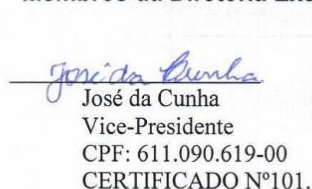 José da Cunha
José da Cunha
Vice-Presidente
CPF: 611.090.619-00
CERTIFICADO Nº101.